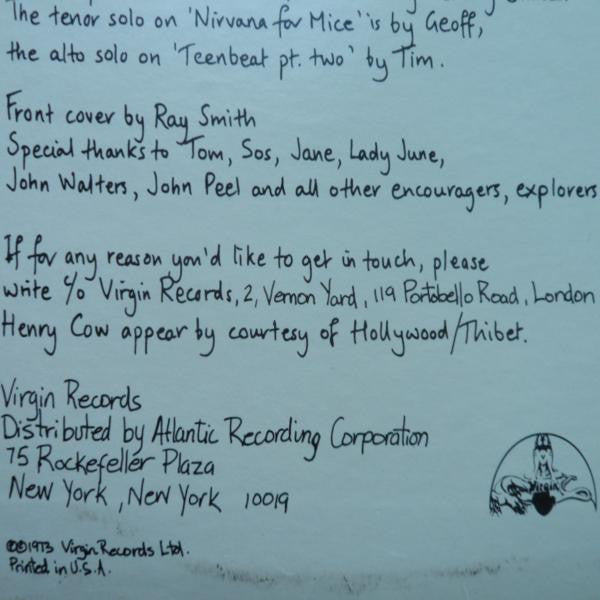 The tenor solo on 'Nirvana for Mice' is by Geoff,
the alto solo on 'Teenbeat pt. two' by Tim.
Front cover by Ray Smith
Special thanks to Tom, Sos, Jane, Lady June,
John Walters, John Peel and all other encouragers, explorers
If for any reason you'd like to get in touch, please
write c/o Virgin Records, 2, Vernon Yard, 119 Portobello Road, London
Henry Cow appear by courtesy of Hollywood/Thibet.
Virgin Records
Distributed by Atlantic Recording Corporation
75 Rockefeller Plaza
New York, New York 10019
Virgin
℗©1973 Virgin Records Ltd.
Printed in U.S.A.